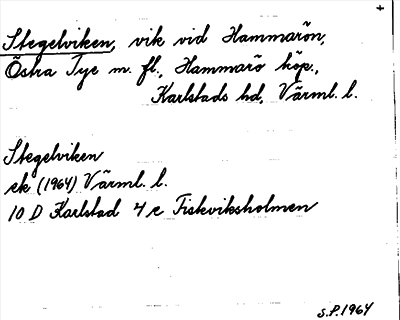 +
Stegelviken, vik vid Hammarön,
Östra Tye m. fl., Hammarö köp.,
Karlstads hd, Värml. l.
Stegelviken
ek (1964) Värml. l.
10 D Karlstad 4 c Fiskviksholmen
S.P. 1964